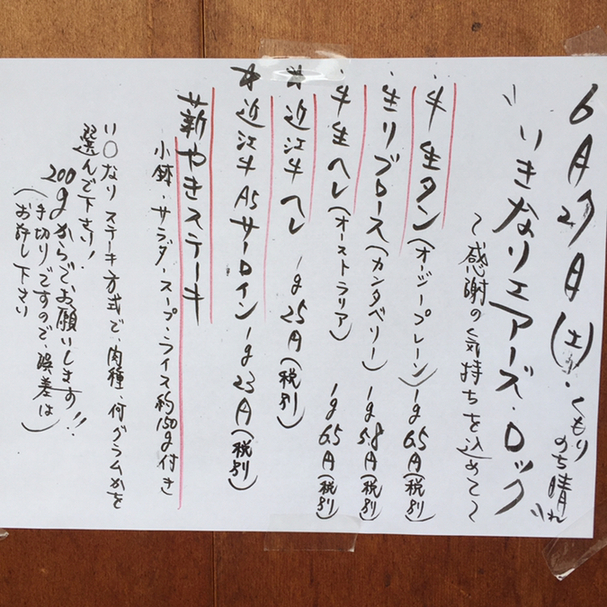 6月27日(土)・くもりのち晴れ
"いきなりエアーズ・ロック"
〜感謝の気持ちを込めて〜
・牛生タン(オージープレーン) 1g 6.5円(税別)
・生リブロース(カンタベリー) 1g 5.8円(税別)
・牛生ヘレ(オーストラリア) 1g 6.5円(税別)
＊近江牛ヘレ 1g 25円(税別)
＊近江牛A5サーロイン 1g 23円(税別)
薪やきステーキ
小鉢・サラダ・スープ・ライス約150g付き
い〇なりステーキ方式で、肉種、何グラムかを
選んで下さい!
200gからでお願いします!!
(手切りですので、誤差は
お許し下さい)